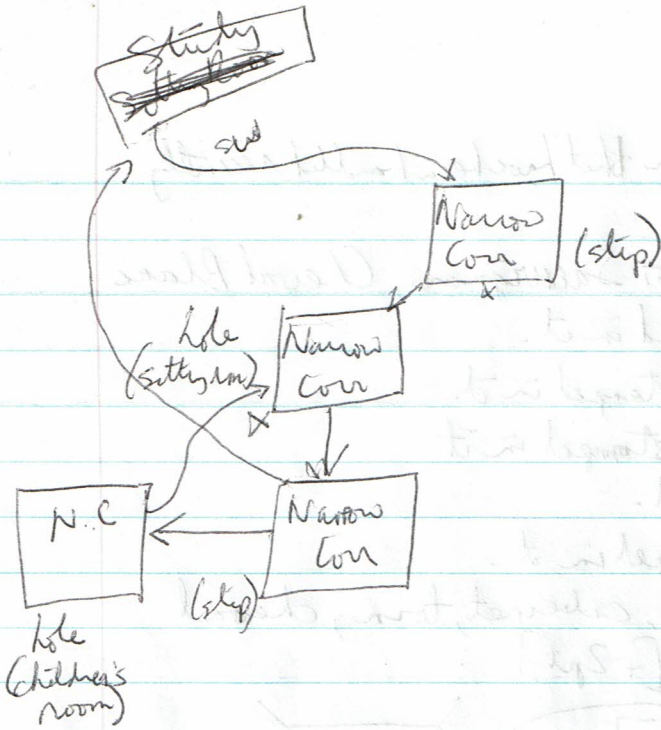 Study
Narrow
Corr
(step)
hole
(sitting room)
Narrow
Corr
Narrow
Corr
(step)
N.C
hole
(children's
room)